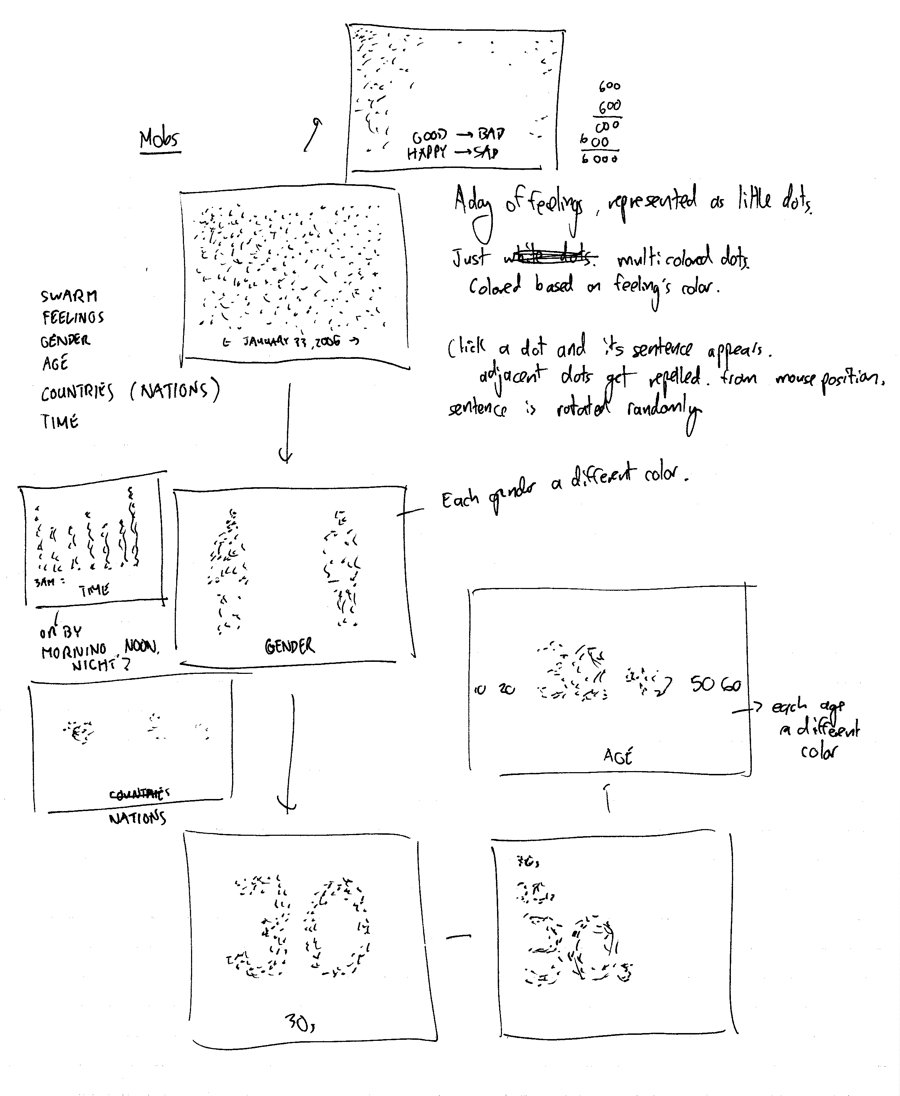 Mobs
GOOD → BAD
HAPPY → SAD
600
600
000
600
6000
A day of feelings, represented as little dots.
Just white dots. multicolored dots.
Colored based on feeling's color.
SWARM
FEELINGS
GENDER
AGE
COUNTRIES (NATIONS)
TIME
← JANUARY 23, 2006 →
Click a dot and its sentence appears.
adjacent dots get repelled. from mouse position,
sentence is rotated randomly
Each gender a different color.
3AM =
TIME
OR BY
MORNING, NOON,
NIGHT?
GENDER
10 20 30 50 60
AGE
each age
a different
color
COUNTRIES
NATIONS
30
30s
30s
30s
30s